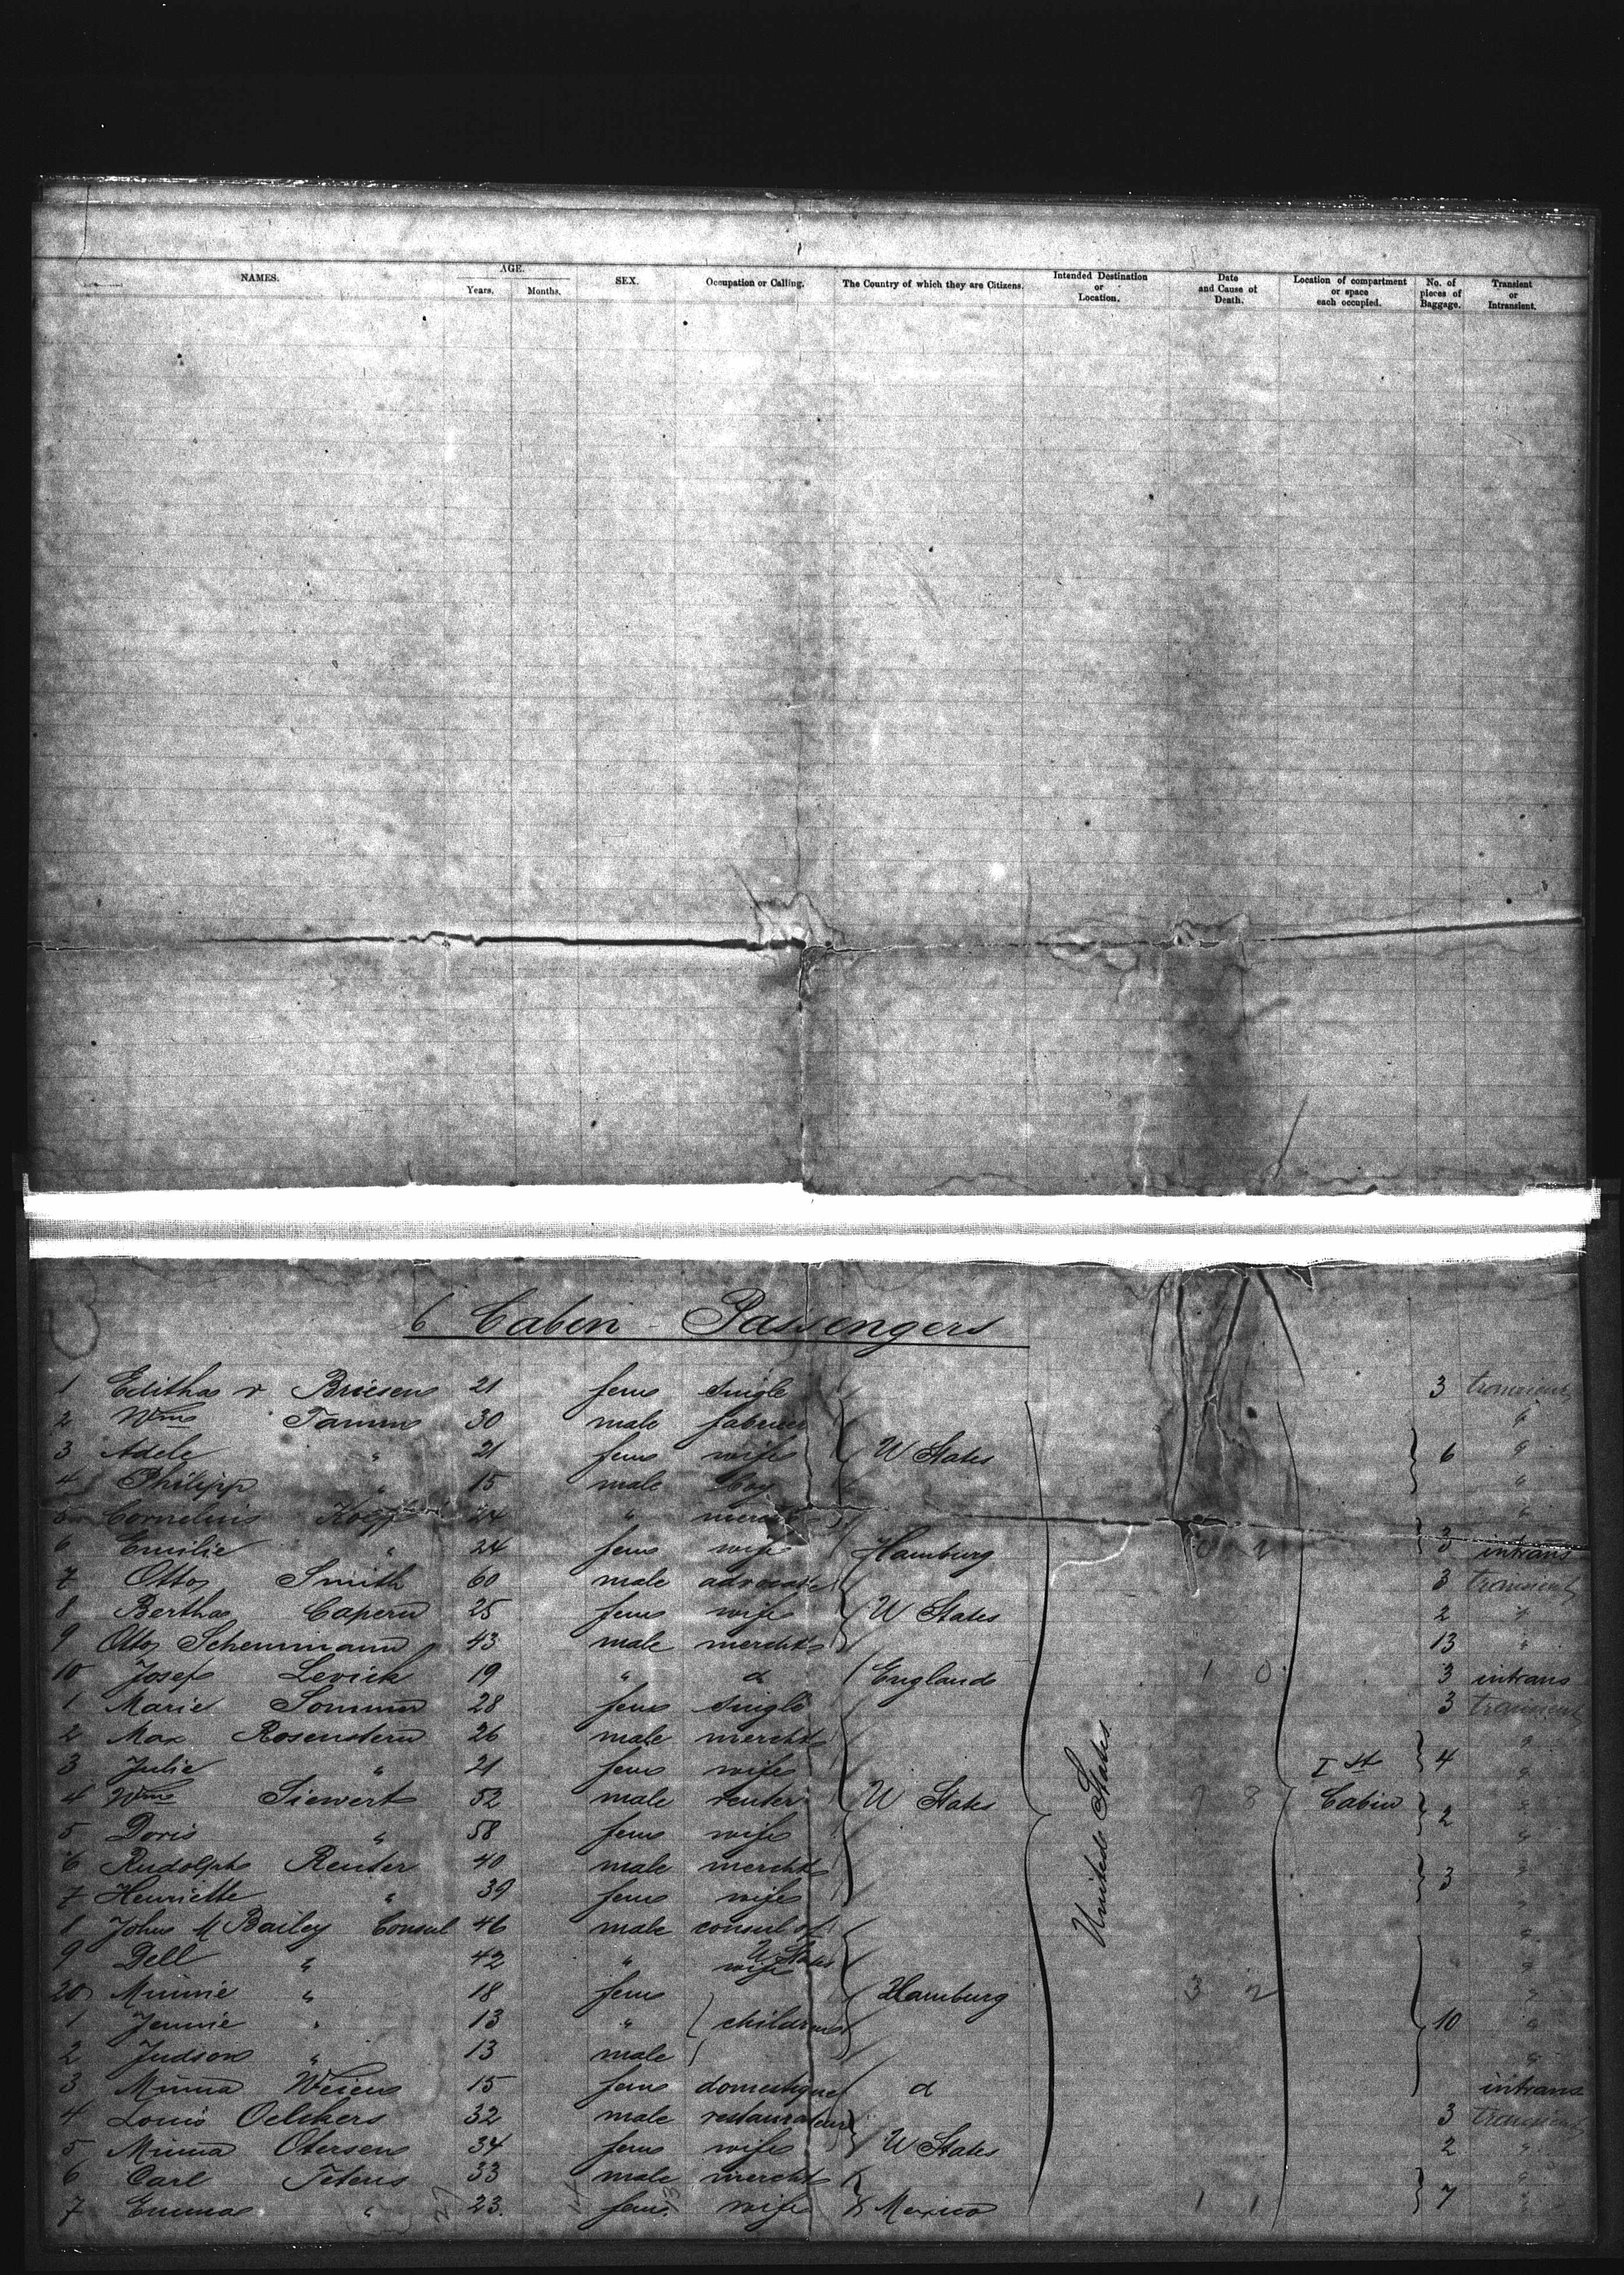 NAMES. AGE. Years. Months. SEX. Occupation or Calling. The Country of which they are Citizens. Intended Destination or Location. Date and Cause of Death. Location of compartment or space each occupied. No. of pieces of Baggage. Transient or Intransient.
6 Cabin - Passengers
1 Editha v Briesen 21 fem single 3 transient
2 Wm Tamm 30 male "
3 Adele " 21 fem wife U States 6 "
4 Philipp " 15 male boy "
5 Cornelius 24 " "
6 Emilie " 24 fem wife Hamburg 3 intrans
7 Otto Smith 60 male advocate 3 transient
8 Bertha Capern 25 fem wife U States 2 "
9 Otto Schemmann 43 male mercht 13 "
10 Josef Levick 19 " d England 1 0 3 intrans
1 Marie Sommer 28 fem single 3 transient
2 Max Rosenstern 26 male mercht "
3 Julie " 21 fem wife Ist 4 "
4 Wm Siewert 52 male renter U States United States 8 Cabin "
5 Doris " 58 fem wife 2 "
6 Rudolph Reuter 40 male mercht "
7 Henriette " 39 fem wife 3 "
8 John M Bailey Consul 46 male consul of U States "
9 Dell " 42 " wife "
20 Minnie " 18 fem Hamburg 3 2 "
1 Jennie " 13 " children 10 "
2 Judson " 13 male "
3 Minna Weien 15 fem domestique d intrans
4 Louis Oelkers 32 male restaurateur 3 transient
5 Minna Otersen 34 fem wife U States 2 "
6 Carl Tetens 33 male mercht "
7 Emma " 23. fem. wife Mexico 1 1 7 "